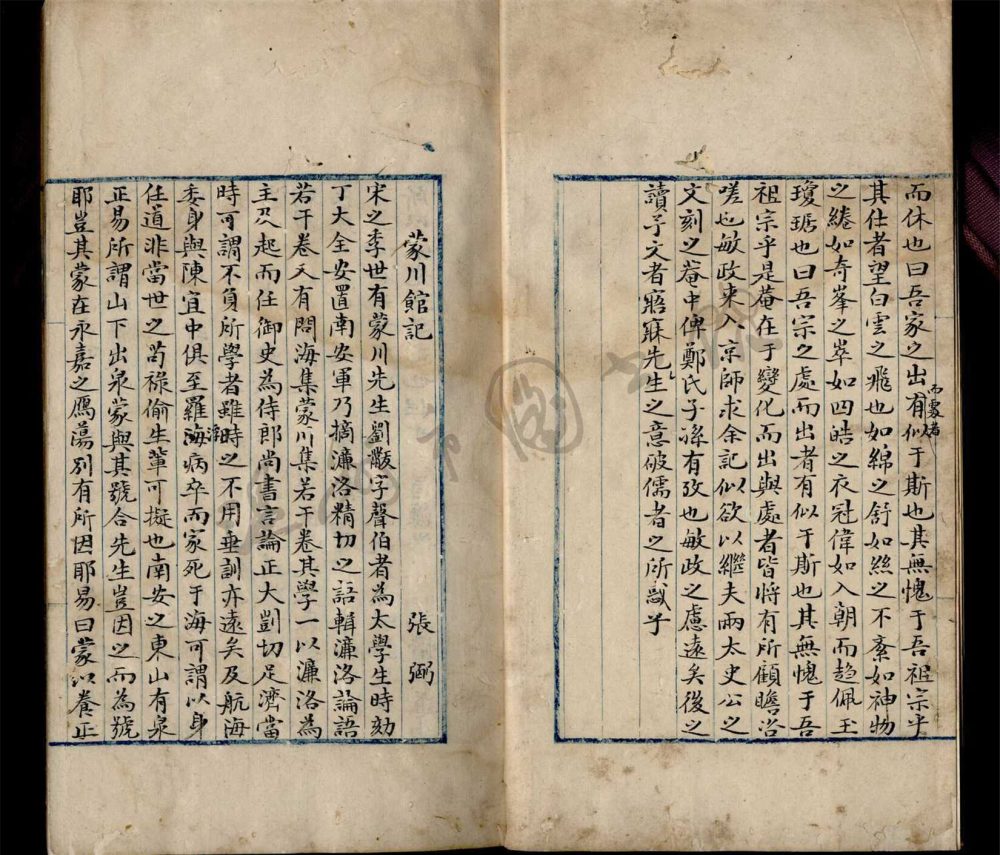 而休也曰吾家之出有似于斯也其無愧于吾祖宗乎
其仕者望白雲之飛也如綿之舒如絲之不紊如神物
之綣如奇峯之崒如四皓之衣冠偉如入朝而趋佩玉
瓊琚也曰吾宗之處而出者有似于斯也其無愧于吾
祖宗乎是菴在于變化而出與處者皆將有所顧瞻咨
嗟也敏政来入京師求余記似欲以繼夫兩太史公之
文刻之菴中俾鄭氏子孫有攷也敏政之慮遠矣後之
讀予文者寤寐先生之意破儒者之所
蒙川館記
張弼
宋之季世有蒙川先生劉黻字聲伯者為太學生時劾
丁大全安置南安軍乃摘濂洛精切之語輯濂洛論語
若干卷又有問海集蒙川集若干卷其學一以濂洛為
主及起而任御史為侍郎尚書言論正大剴切足濟當
時可謂不負所學者雖時之不用垂訓亦遠矣及航海
委身與陳宜中俱至羅浮海病卒而家死于海可謂以身
任道非當世之苟祿偷生輩可擬也南安之東山有泉
正易所謂山下出泉蒙與其號合先生豈因之而為號
耶豈其蒙在永嘉之鴈蕩別有所因耶易曰蒙以養正